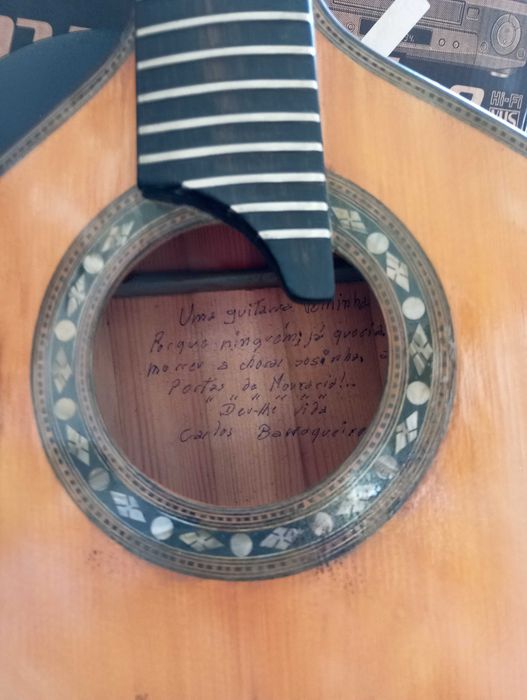 HI-FI
Uma guitarra velhinha
Porque ninguém já queria
morrer a chorar sosinha
Portas da Mouraria!..
" " " " " "
Deu-lhe vida
Carlos Barroqueiro